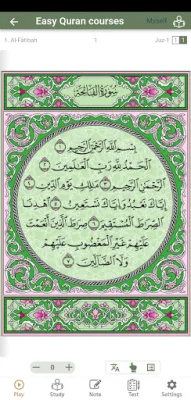 Easy Quran courses
Myself
1. Al-Fātihah
1
Juz-1
1
سورة الفاتحة
بِسْمِ اللَّهِ الرَّحْمَٰنِ الرَّحِيمِ ١
الْحَمْدُ لِلَّهِ رَبِّ الْعَالَمِينَ ٢
الرَّحْمَٰنِ الرَّحِيمِ ٣ مَالِكِ يَوْمِ الدِّينِ ٤
إِيَّاكَ نَعْبُدُ وَإِيَّاكَ نَسْتَعِينُ ٥ اهْدِنَا
الصِّرَاطَ الْمُسْتَقِيمَ ٦ صِرَاطَ الَّذِينَ أَنْعَمْتَ
عَلَيْهِمْ غَيْرِ الْمَغْضُوبِ عَلَيْهِمْ
وَلَا الضَّالِّينَ ٧
− 0 +
Play
Study
Note
Test
Settings